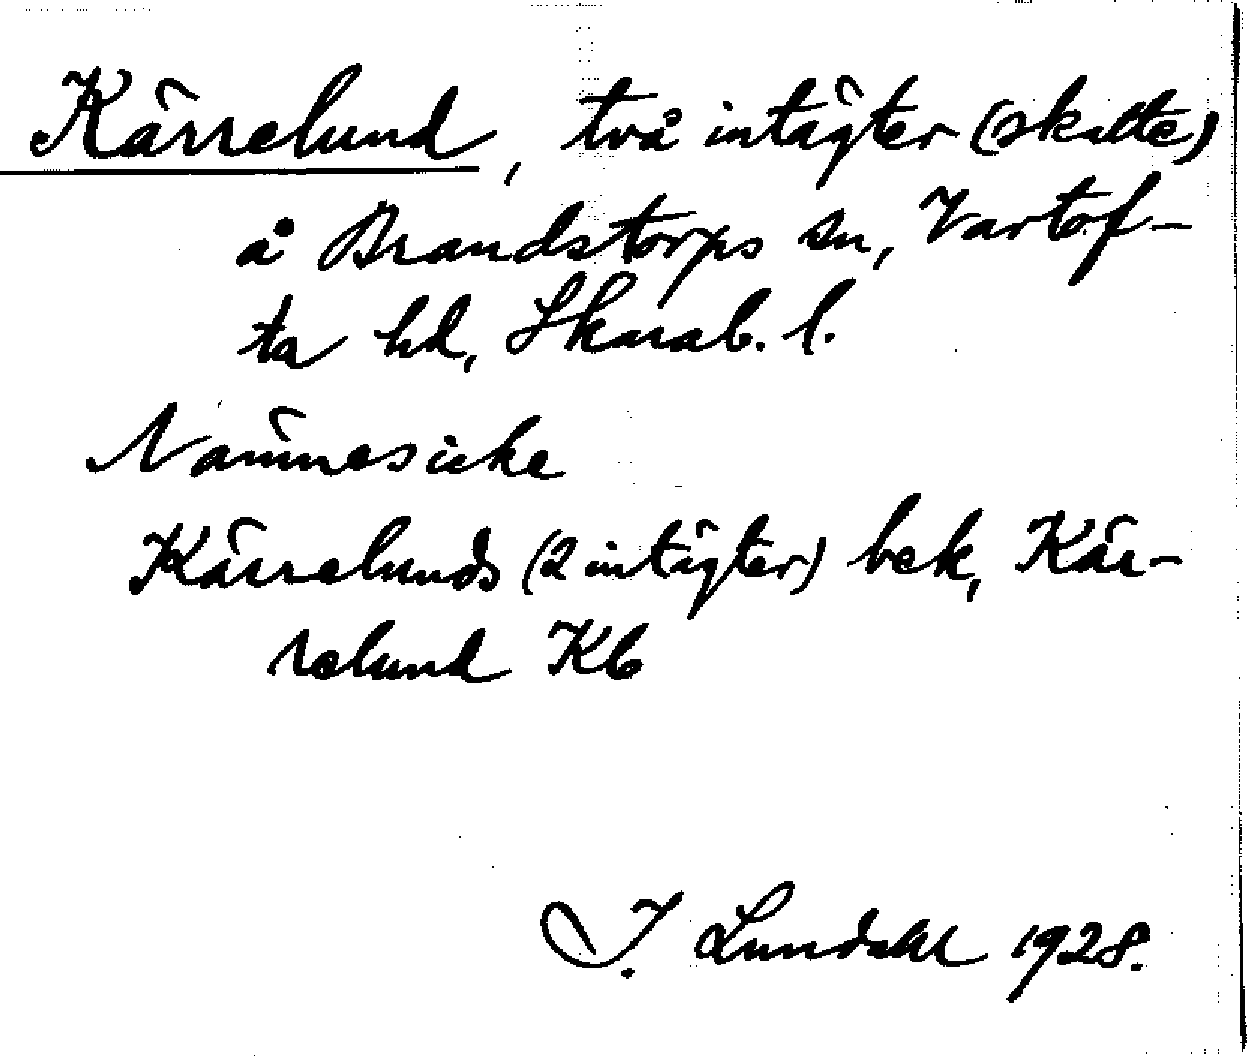 Kärrelund, två intägter (skatte)
å Brandstorps sn, Vartof-
ta hd, Skarab. l.
Nämnes icke
Kärrelunds (2 intägter) bek, Kär-
relund Kb
I. Lundahl 1928.